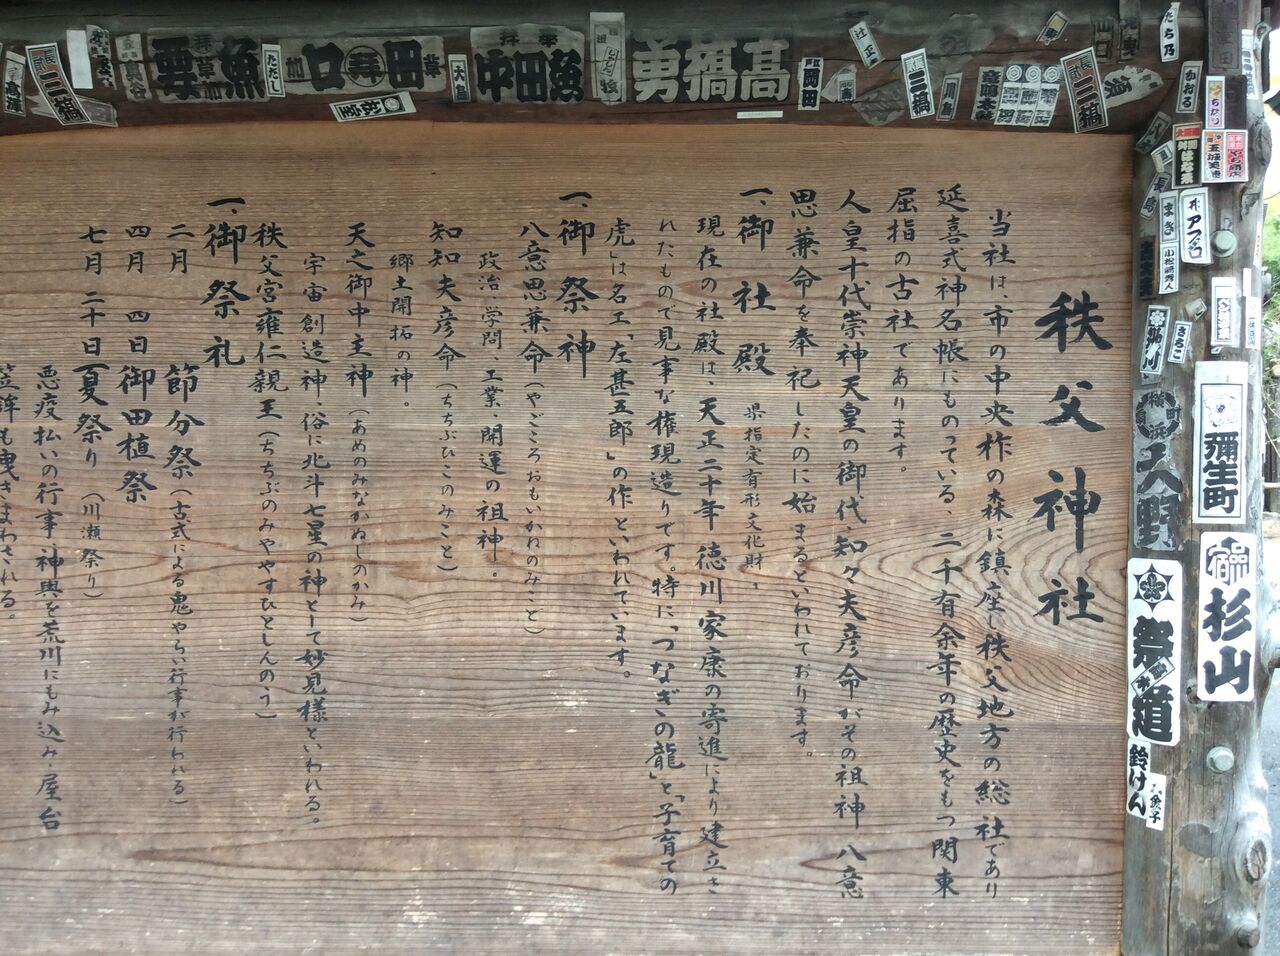 秩父神社
当社は、市の中央柞の森に鎮座し秩父地方の総社であり
延喜式神名帳にものっている、二千有余年の歴史をもつ関東
屈指の古社であります。
人皇十代崇神天皇の御代、知々夫彦命がその祖神 八意
思兼命を奉祀したのに始まるといわれております。
一、御社殿 県指定有形文化財
現在の社殿は、天正二十年 徳川家康の寄進により建立さ
れたもので見事な権現造りです。特に「つなぎの龍」と「子育ての
虎」は名工「左甚五郎」の作といわれています。
一、御祭神
八意思兼命(やごころおもいかねのみこと)
政治、学問、工業、開運の祖神。
知知夫彦命(ちちぶひこのみこと)
郷土開拓の神。
天之御中主神(あめのみなかぬしのかみ)
宇宙創造神・俗に北斗七星の神として妙見様といわれる。
秩父宮雍仁親王(ちちぶのみややすひとしんのう)
一、御祭礼
二月 節分祭(古式による鬼やらい行事が行われる)
四月 四日 御田植祭
七月 二十日 夏祭り(川瀬祭り)
悪疫払いの行事・神輿を荒川にもみ込み・屋台
笠鉾も曳きまわされる。
魚
ただし
田
口
大島
魚田中
高橋勇
辻正
三橋
川島
斎藤太
長三橋
たち乃
かおる
ちかり
井アブロ
まき
小松崎秀人
さちこ
横浜
天野
彌生町
杉山
祭道
鈴けん
金子